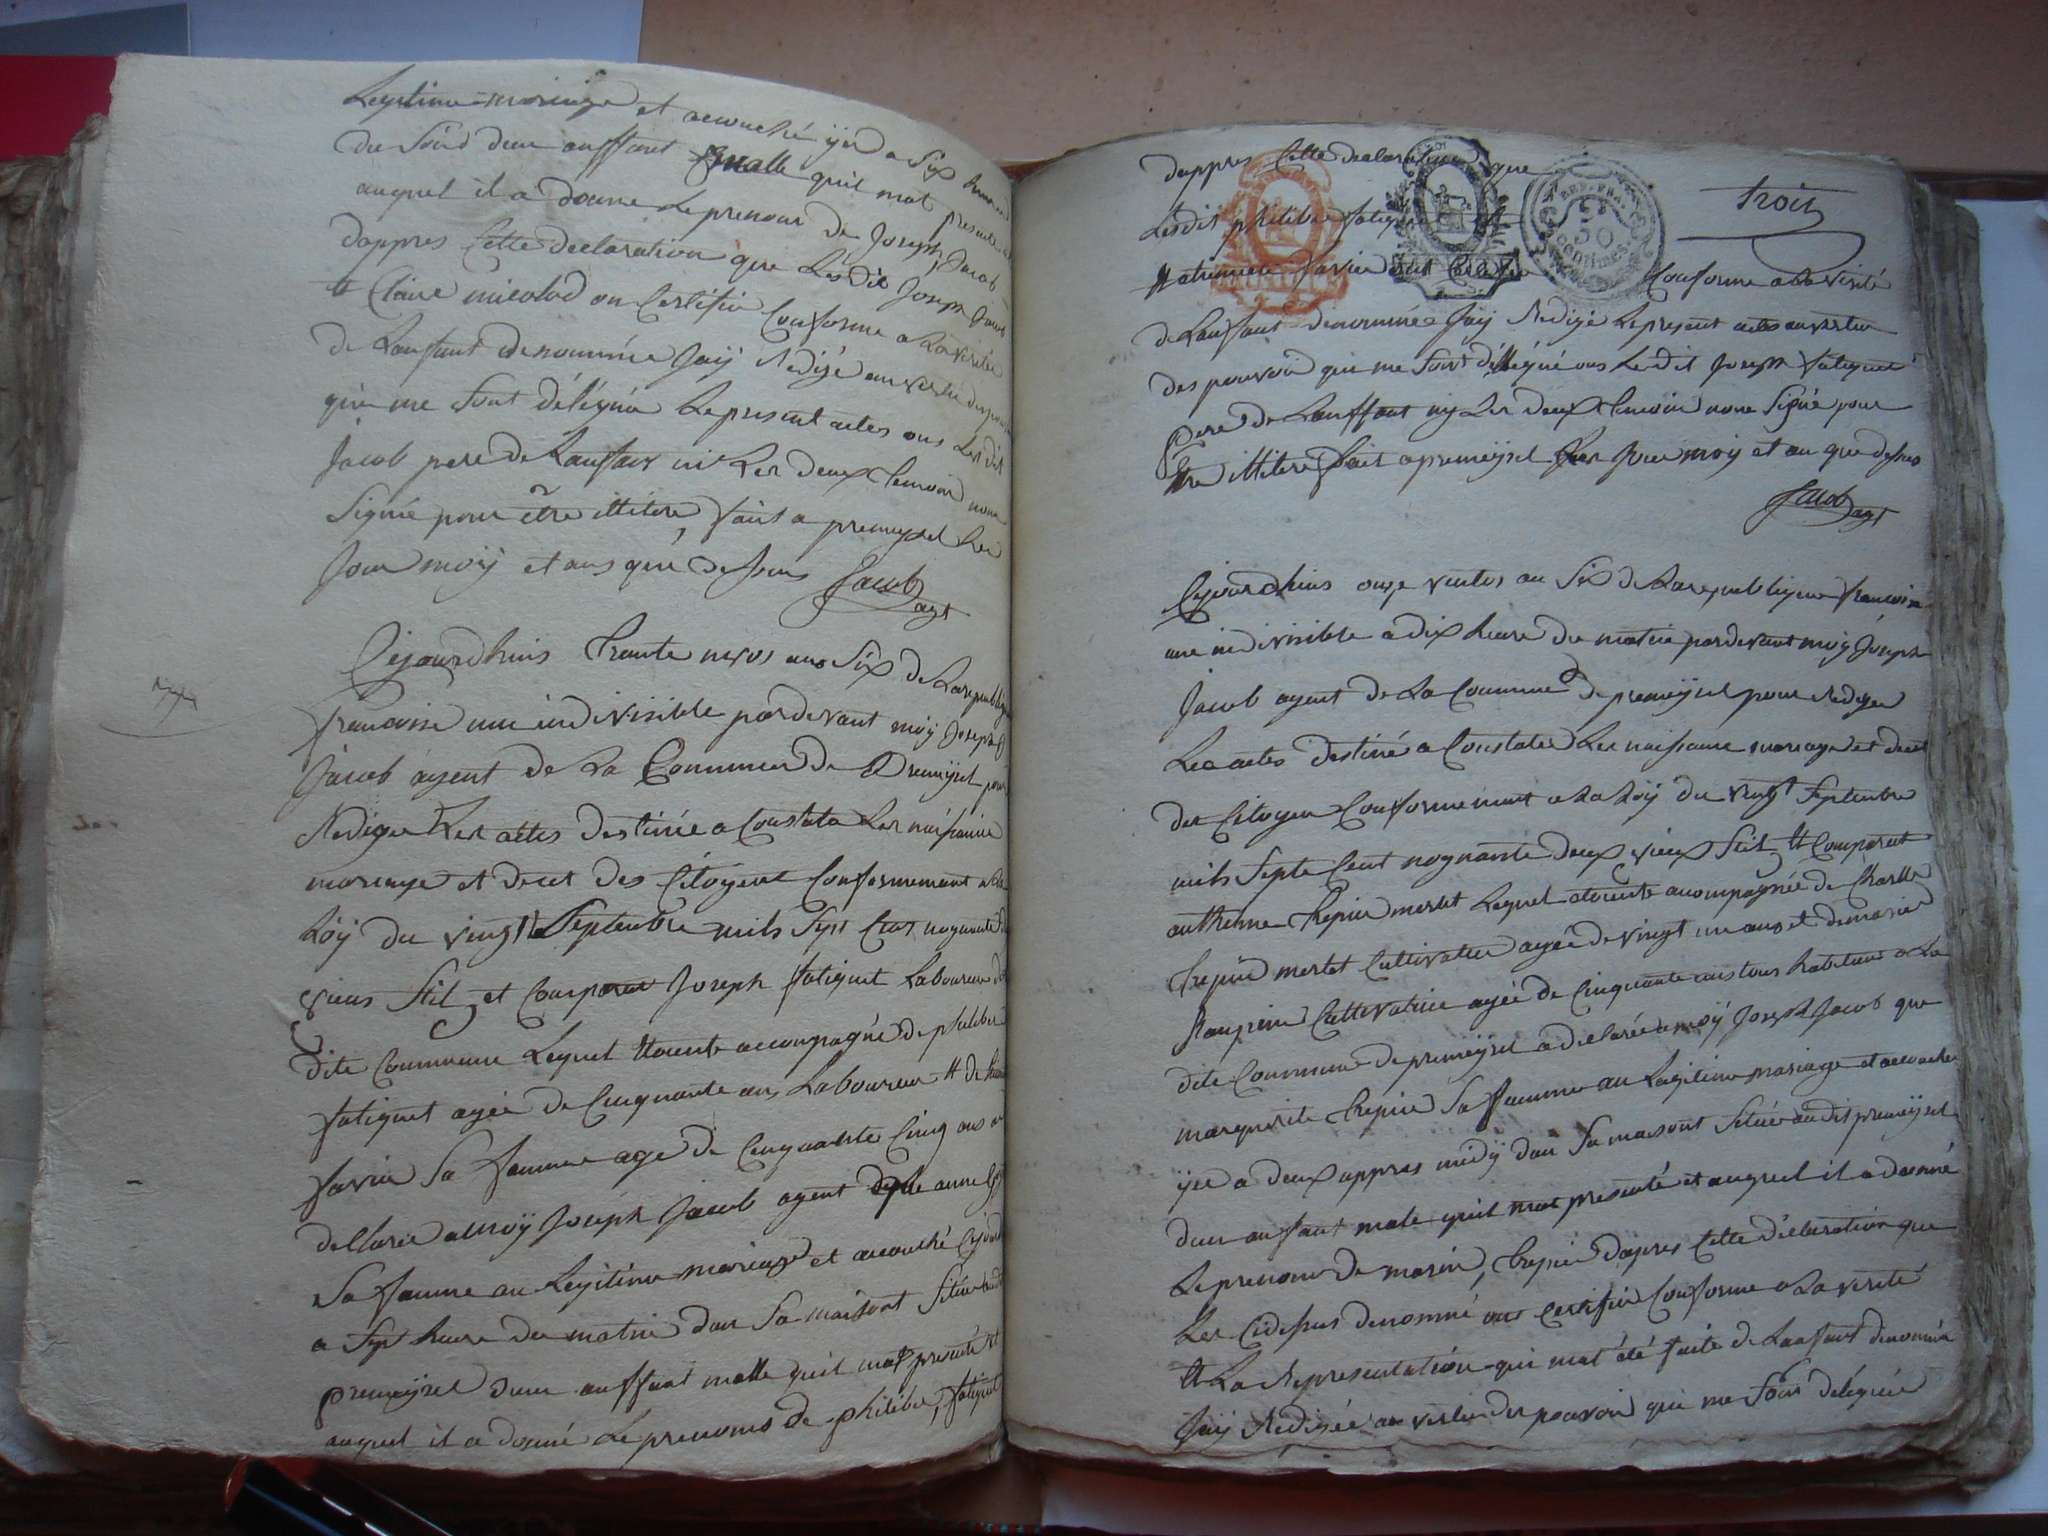 Legitime mariage et acouché yer a six heure
du Soird dun anffant malle quil mat presenté et
auquel il a donne le prenour de Joseph, Jacob
dappres Cette declaration que Lesdit Joseph Jacob
et Claire nicolad on Certifie Conforme a La veritée
de Lanfant denoummée Jaÿ Redigé an vertu des pouvoir
qui me Sont délégué Le present actes ous Les dit
Jacob pere de Lanfant ni Les deux temoin nome
Signié pour être illitere, fait a premeysel Les
Jour moÿ et ans que dessus Jacob
agt
Cejourdhuis trante nivos ans Six de La republique
francoise une indivisible pardevant moÿ Joseph
Jacob agent de La Commune de Premeÿsel pour
Rediger Les actes destinée a Constate Les naissance
mariage et deces des Citoyent Conformement a La
Loÿ du vingt Septembre mils Sept Cent nognante
vieux Stil et Comparut Joseph fatiguet Laboureur
dite Commune Lequel etoient accompagné de philiber
fatiguet agée de Cinquante ans Laboureur et de
favier Sa famme age de Cinquante Cinq ans a
dellarée a moÿ Joseph Jacob agent que anne
Sa famme an Legitime mariage et acouché Cejourd
a Sept heure du matin dan Sa maisont Situé
premeÿsel dun anffant malle quil mat presenté et
auquel il a donné Le prenoms de philiber, fatiguet
trois
REP. FRA.
50
CENTIMES.
dappres Cette declaration que
Lesdit philibe fatiguet et
favier ont Certifie Conforme a La verité
de Lanffant denommée Jaÿ Redigé Le present actes an vertu
des pouvoir qui me Sont déllégué ous Ledit Joseph fatiguet
Pere de Lanffant nÿ Les deux temoin nome Signé pour
etre illitere fait a premeÿsel Les Jour moÿ et an que dessus
Jacob agt
Cejourdhuis onze ventos an Six de La republique francoise
une indivisible a dix heure du matin pardevant moÿ Joseph
Jacob agent de La Commune de premeÿsel pour Rediger
Les actes destiné a Constater Les naissance mariage et decet
des Citoyen Conformement a La Loÿ du vingt Septembre
mils Septe Cent nognante deux vieux Stil et Comparut
anthenne trepier mertet Lequel etoient acompagnée de Charlle
trepier mertet Cultivateur agée de vingt un ans et de marie
Raupierre Cultivatrice agée de Cinquante ans tous habitant a La
dite Commune de premeÿsel a declarée a moÿ Joseph Jacob que
marguerite trepier Sa famme an Legitime mariage et acouche
yer a deux appres midÿ dan Sa masont Situé audit premeÿsel
dun anfant male quil mat presenté et auquel il a donné
Le prenome de marin, trepier dapres Cette déclaration que
Les Cidessus denommé ons Certifie Conforme a La verité
et La Representation qui mat été faite de Lanfant denommée
Jaÿ Redigée an vertu des pouvoir qui me Sont délégués